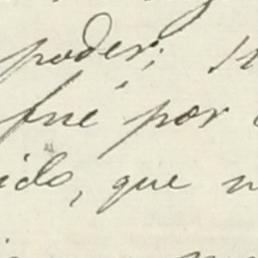 poder;
fué por
ido, que